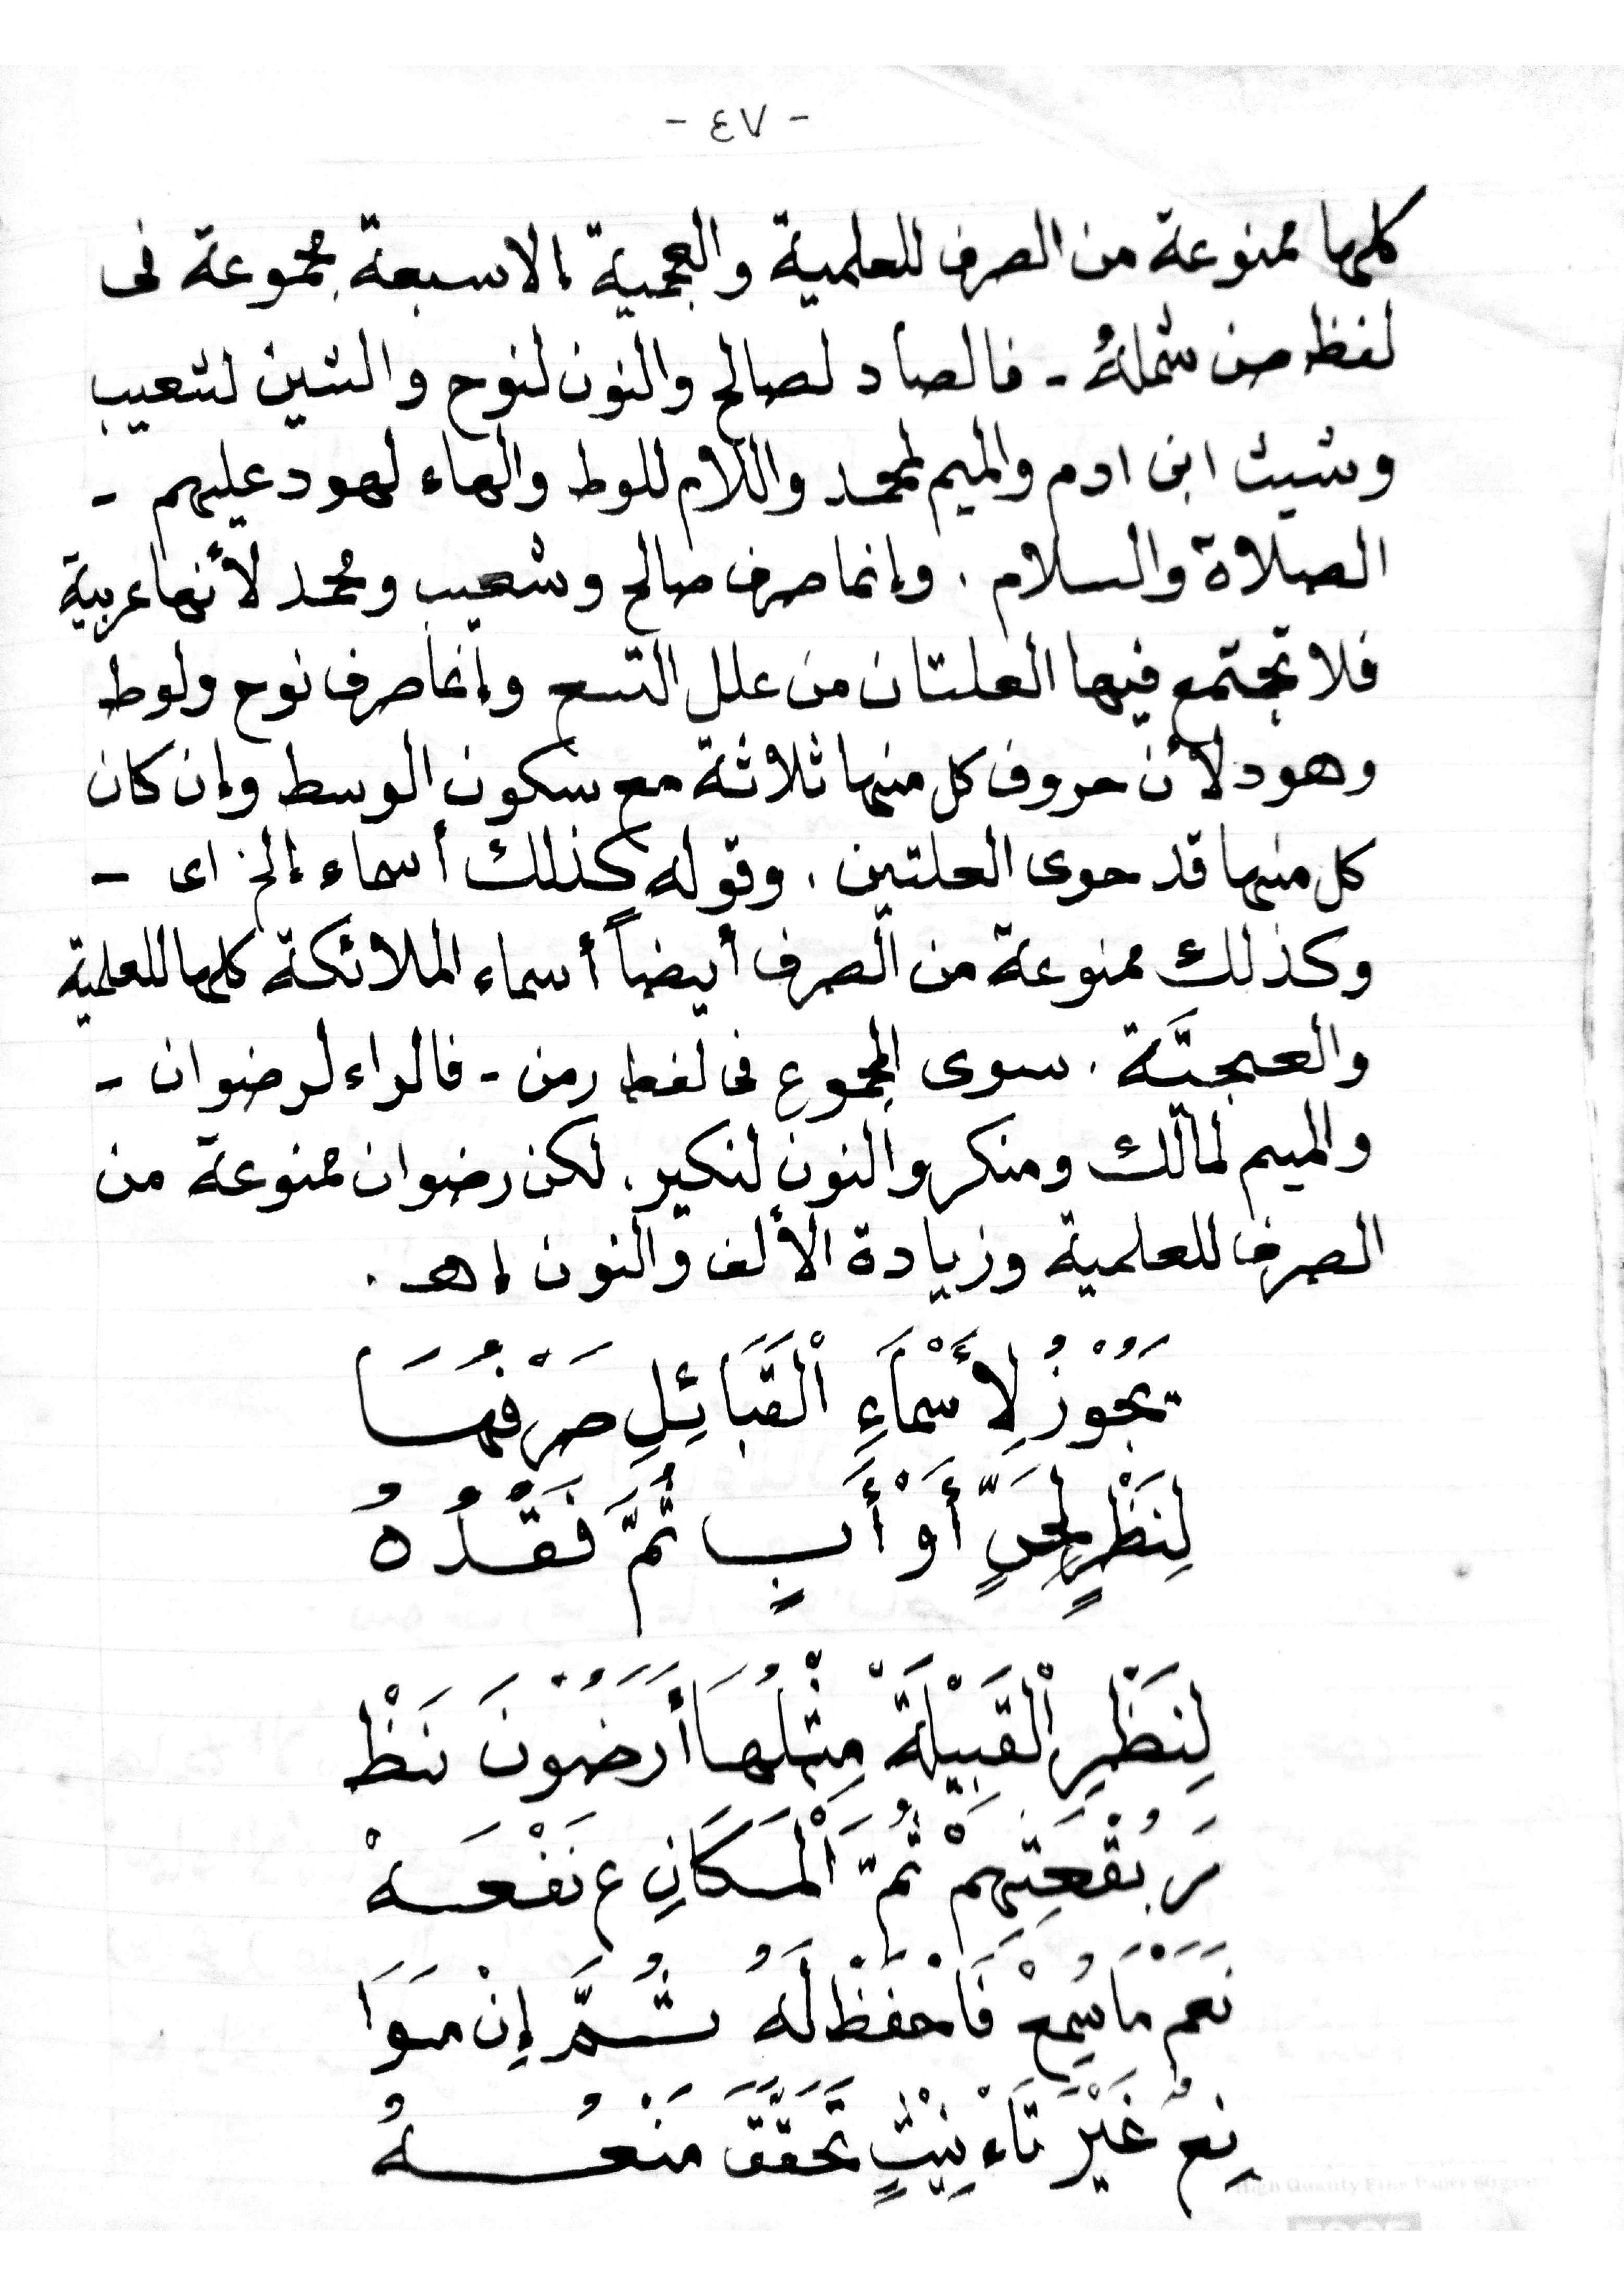 - ٤٧ -
كلها ممنوعة من الصرف للعلمية والعجمية إلا سبعة مجموعة فى
لفظ صن شمله - فالصاد لصالح والنون لنوح والشين لشعيب
وشيث ابن ادم والميم لمحمد واللام للوط والهاء لهود عليهم -
الصلاة والسلام . وإنما صرف صالح وشعيب ومحمد لأنها عربية
فلا تجتمع فيها العلتان من علل التسع وإنما صرف نوح ولوط
وهود لأن حروف كل منها ثلاثة مع سكون الوسط وإن كان
كل منها قد حوى العلتين . وقوله كذلك أسماء إلخ اى -
وكذلك ممنوعة من الصرف أيضاً أسماء الملائكة كلها للعلمية
والعجميَّة . سوى المجموع فى لفظ رمن - فالراء لرضوان -
والميم لمالك ومنكر والنون لنكير . لكن رضوان ممنوعة من
الصرف للعلمية وزيادة الألف والنون إهـ .
يَجُوْزُ لِأَسْمَاءِ الْقَبَائِلِ صَرْفُهَا
لِنَظْرٍ لِحَىٍّ أَوْ أَبٍ ثُمَّ فَقْدُهُ
لِنَظْرِ الْقَبِيْلَةِ مِثْلُهَا أَرَضُوْنَ نَظْ
رَ بُقْعَتِهِمْ ثُمَّ الْمَكَانِ ع نَفْعَهْ
نَعَمْ مَا سُمِعْ فَاحْفَظْ لَهُ ثُمَّ إِنْ مَوَا
نِعُ غَيْرَ تَاءْنِيْثٍ تَحَقَّقَ مَنْعُهُ